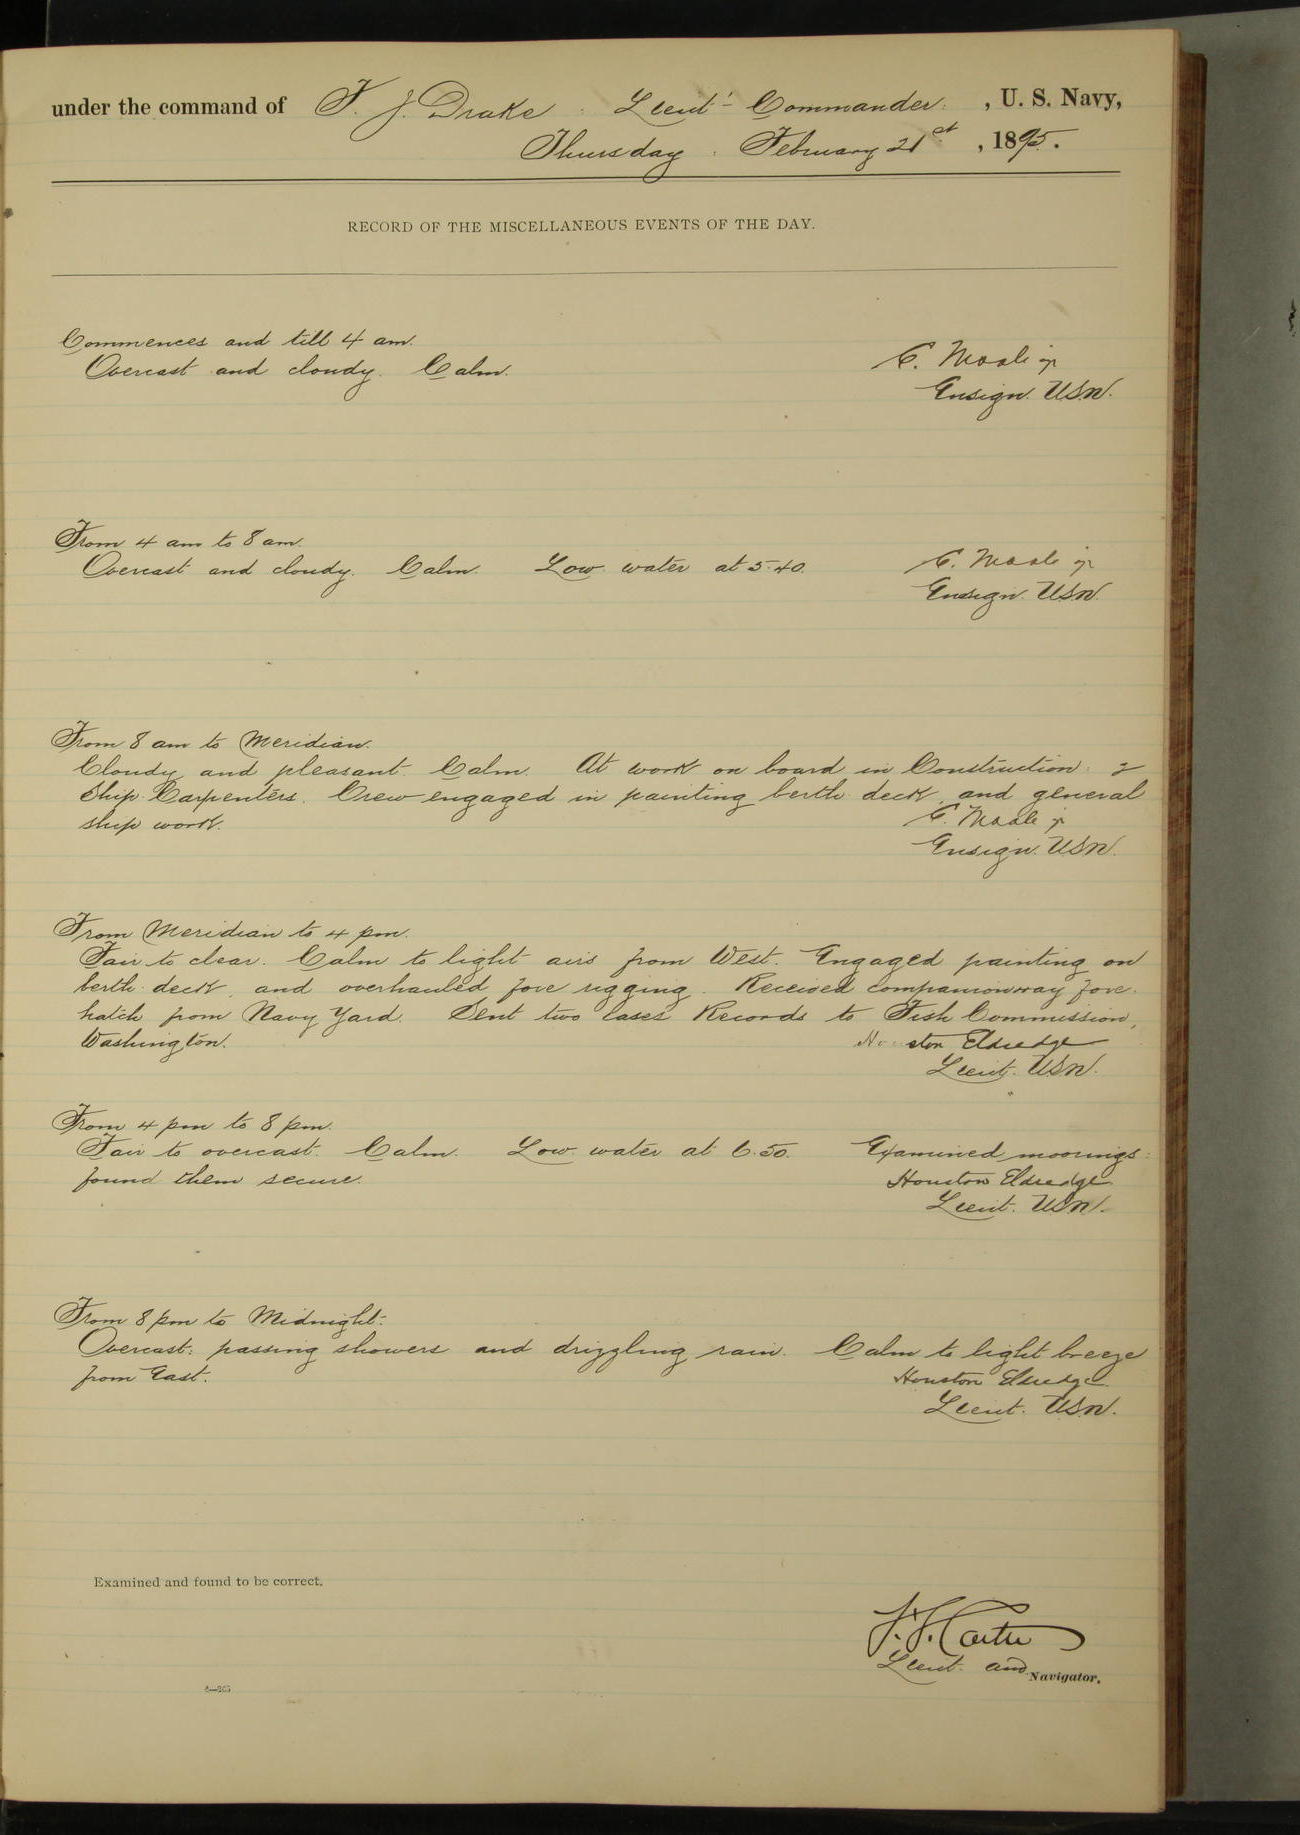 under the command of F. J. Drake Lieut- Commander , U. S. Navy,
Thursday February 21st , 1895.
RECORD OF THE MISCELLANEOUS EVENTS OF THE DAY.
Commences and till 4 am.
Overcast and cloudy. Calm.
C. Moale jr
Ensign. USN.
From 4 am to 8 am.
Overcast and cloudy. Calm. Low water at 5.40.
C. Moale jr
Ensign. USN.
From 8 am to Meridian.
Cloudy and pleasant. Calm. At work on board in Construction. 2
Ship Carpenters. Crew engaged in painting berth deck, and general
ship work.
C. Moale jr
Ensign. USN.
From Meridian to 4 pm.
Fair to clear. Calm to light airs from West. Engaged painting on
berth deck, and overhauled fore rigging. Received companionway fore-
hatch from Navy Yard. Sent two cases Records to Fish Commission,
Washington.
Houston Eldredge
Lieut. USN.
From 4 pm to 8 pm.
Fair to overcast. Calm. Low water at 6.50. Examined moorings:
found them secure.
Houston Eldredge
Lieut. USN.
From 8 pm to Midnight.
Overcast: passing showers and drizzling rain. Calm to light breeze
from East.
Houston Eldredge
Lieut. USN.
Examined and found to be correct.
Lieut. and Navigator.